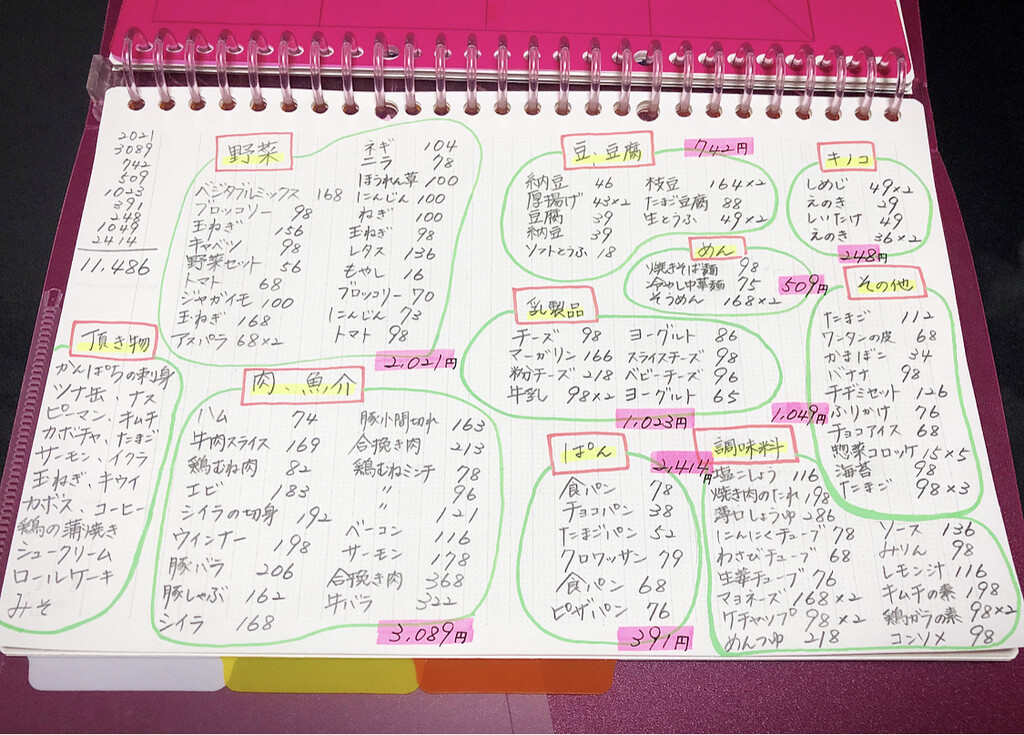 2021
3089
742
509
1023
391
248
1049
2414
11,486
野菜
ベジタブルミックス 168
ブロッコリー 98
玉ねぎ 156
キャベツ 98
野菜セット 56
トマト 68
ジャガイモ 100
玉ねぎ 168
アスパラ 68×2
ネギ 104
ニラ 78
ほうれん草 100
にんじん 100
ねぎ 100
玉ねぎ 98
レタス 136
もやし 16
ブロッコリー 70
にんじん 73
トマト 98
2,021円
豆、豆腐
742円
納豆 46
厚揚げ 43×2
豆腐 39
納豆 39
ソフトとうふ 18
枝豆 164×2
たまご豆腐 88
生とうふ 49×2
キノコ
しめじ 49×2
えのき 39
しいたけ 49
えのき 36×2
248円
めん
焼きそば麺 98
冷やし中華麺 75
そうめん 168×2
509円
乳製品
チーズ 98
マーガリン 166
粉チーズ 218
牛乳 98×2
ヨーグルト 86
スライスチーズ 98
ベビーチーズ 96
ヨーグルト 65
1,023円
その他
たまご 112
ワンタンの皮 68
かまぼこ 34
バナナ 98
チヂミセット 126
ふりかけ 76
チョコアイス 68
惣菜コロッケ 15×5
海苔 98
たまご 98×3
1,049円
頂き物
かんぱちの刺身
ツナ缶、ナス
ピーマン、キムチ
カボチャ、たまご
サーモン、イクラ
玉ねぎ、キウイ
カボス、コーヒー
鶏の蒲焼き
シュークリーム
ロールケーキ
みそ
肉、魚介
ハム 74
牛肉スライス 169
鶏むね肉 82
エビ 183
シイラの切身 192
ウィンナー 198
豚バラ 206
豚しゃぶ 162
シイラ 168
豚小間切れ 163
合挽き肉 213
鶏むねミンチ 78
〃 96
〃 121
ベーコン 116
サーモン 178
合挽き肉 368
牛バラ 322
3,089円
ぱん
食パン 78
チョコパン 38
たまごパン 52
クロワッサン 79
食パン 68
ピザパン 76
391円
調味料
2,414円
塩こしょう 116
焼き肉のたれ 198
薄口しょうゆ 286
にんにくチューブ 78
わさびチューブ 68
生華チューブ 76
マヨネーズ 168×2
ケチャップ 98×2
めんつゆ 218
ソース 136
みりん 98
レモン汁 116
キムチの素 198
鶏ガラの素 98×2
コンソメ 98